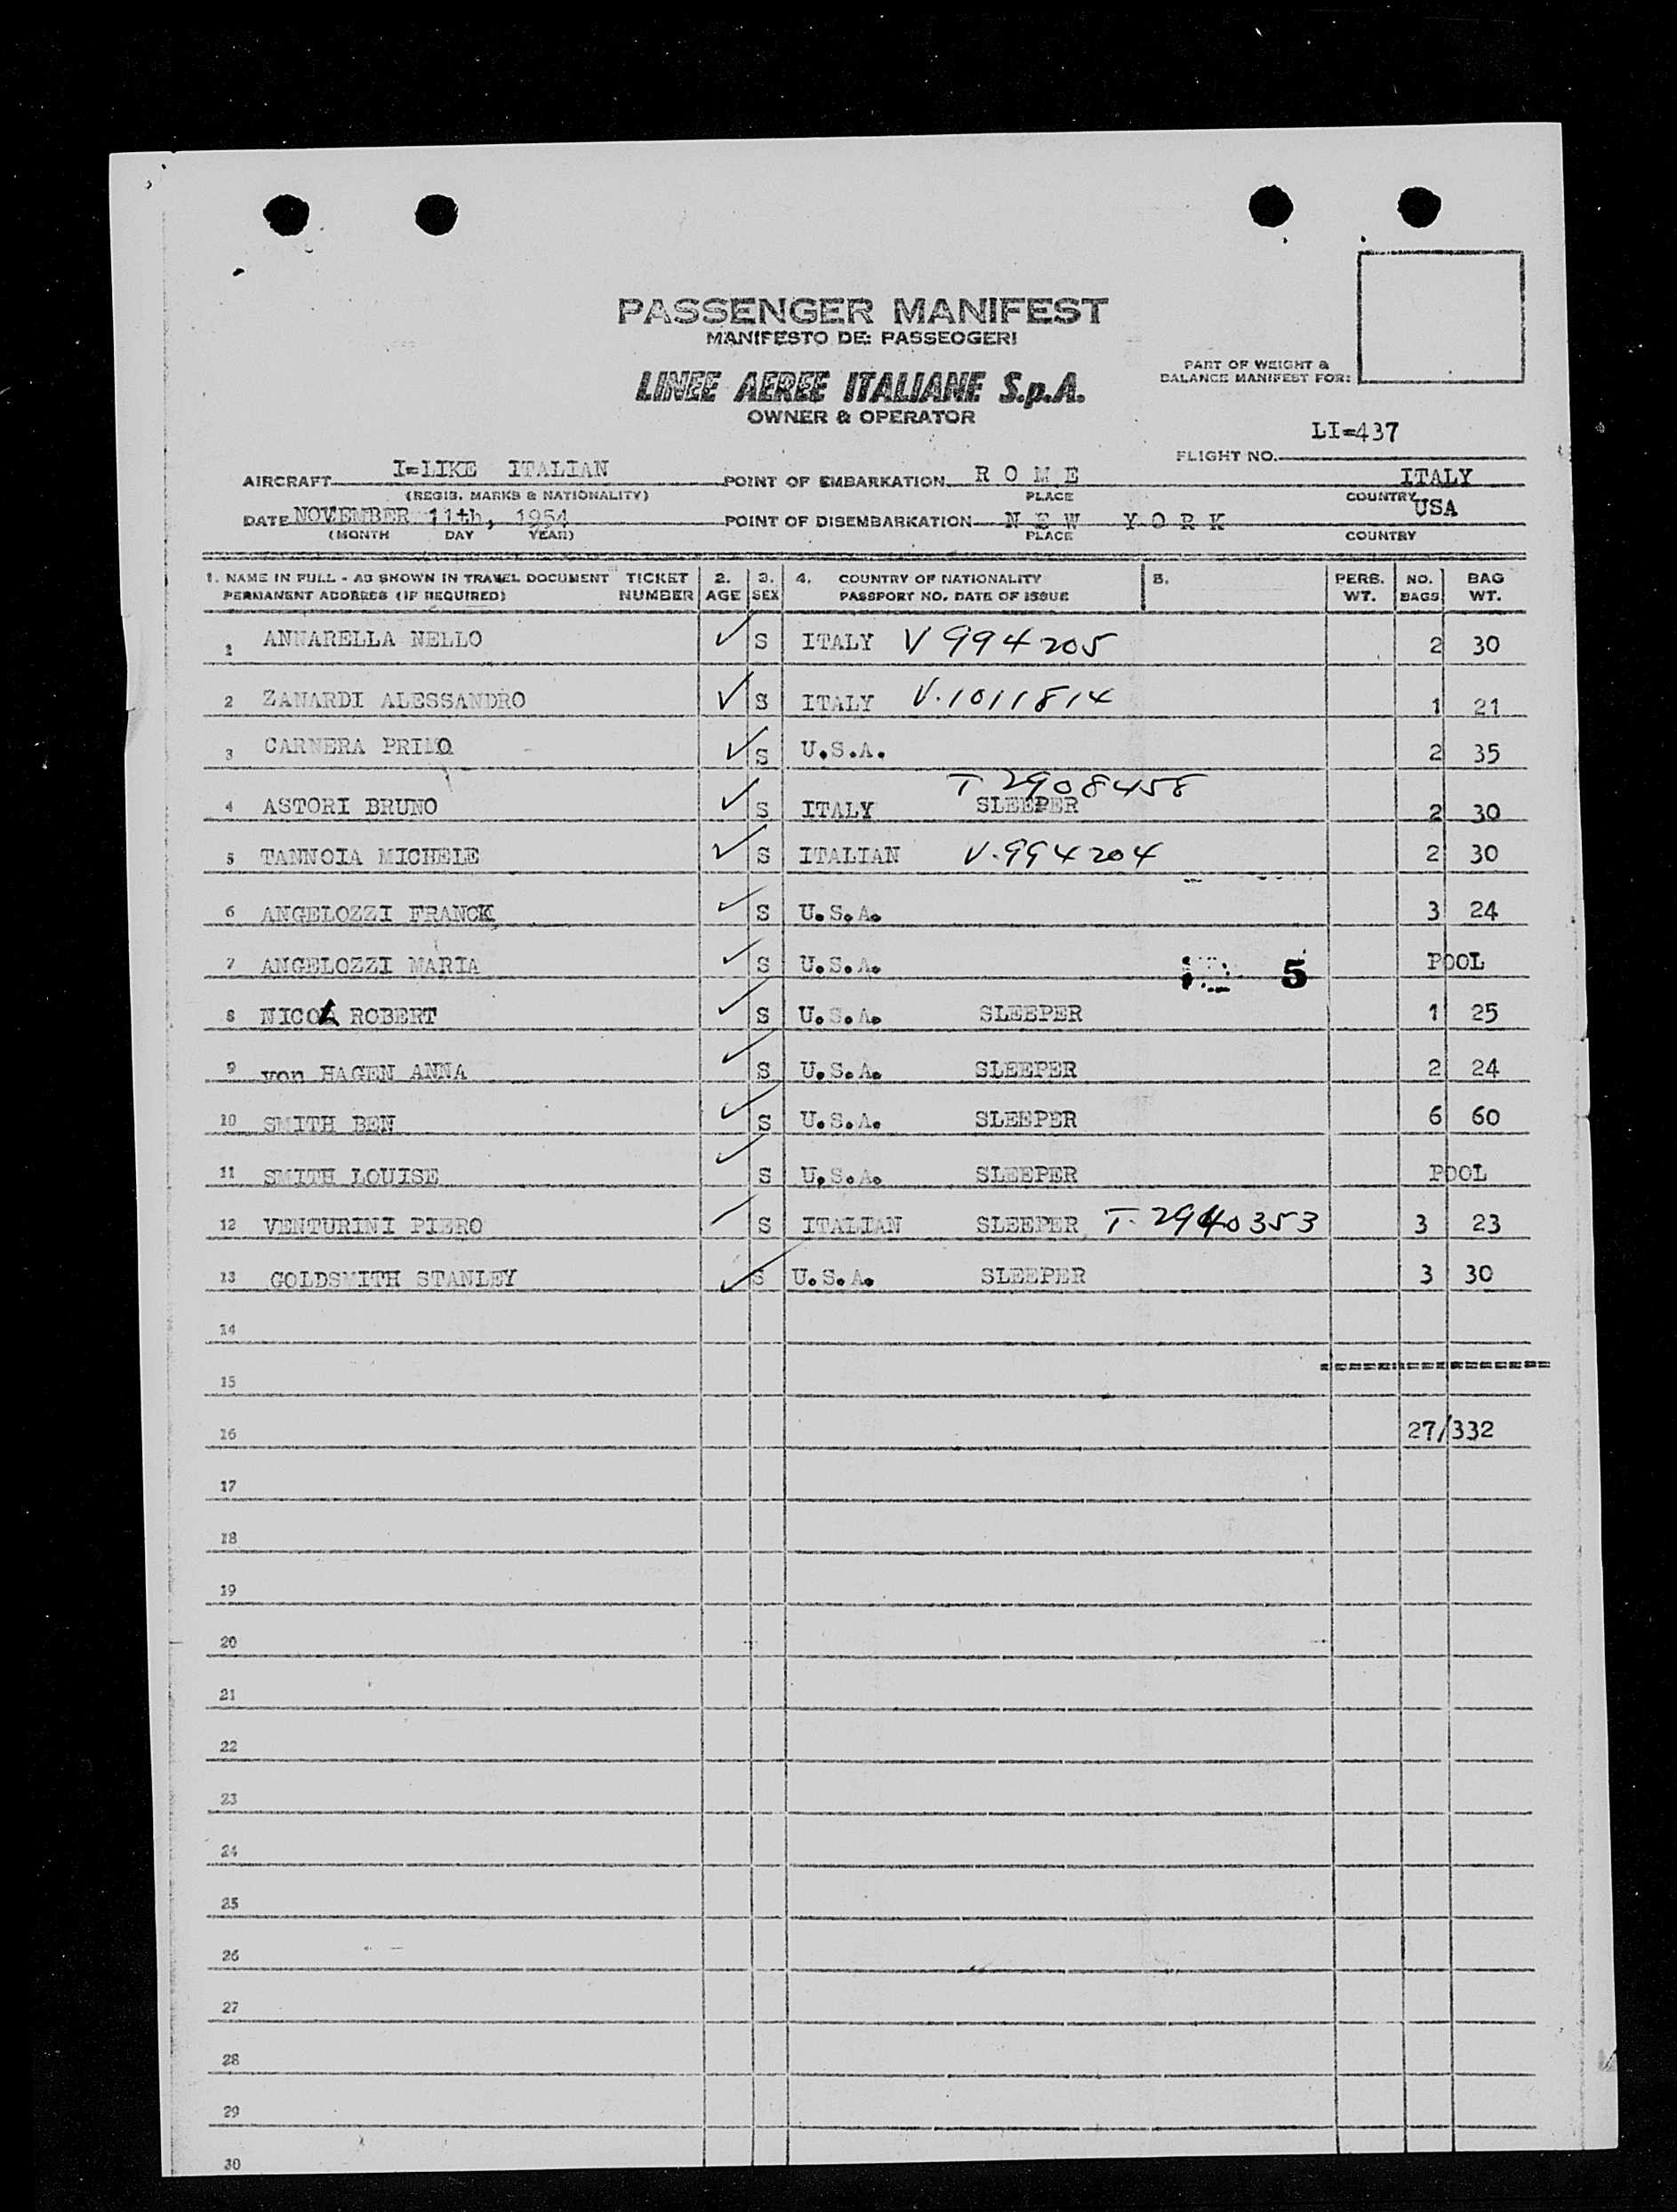 PASSENGER MANIFEST
MANIFESTO DEI PASSEGGERI
PART OF WEIGHT &
BALANCE MANIFEST FOR:
LINEE AEREE ITALIANE S.p.A.
OWNER & OPERATOR
FLIGHT NO. LI=437
AIRCRAFT I=LIKE ITALIAN POINT OF EMBARKATION R O M E ITALY
(REGIS. MARKS & NATIONALITY) PLACE COUNTRY
DATE NOVEMBER 11th, 1954 POINT OF DISEMBARKATION N E W Y O R K USA
(MONTH DAY YEAR) PLACE COUNTRY
1. NAME IN FULL - AS SHOWN IN TRAVEL DOCUMENT TICKET 2. 3. 4. COUNTRY OF NATIONALITY 5. PERS. NO. BAG
PERMANENT ADDRESS (IF REQUIRED) NUMBER AGE SEX PASSPORT NO. DATE OF ISSUE WT. BAGS WT.
1 ANNARELLA NELLO ✓ S ITALY V 994205 2 30
2 ZANARDI ALESSANDRO ✓ S ITALY V.1011814 1 21
3 CARNERA PRIMO ✓ S U.S.A. 2 35
4 ASTORI BRUNO ✓ S ITALY SLEEPER T 2908458 2 30
5 TANNOIA MICHELE ✓ S ITALIAN V.994204 2 30
6 ANGELOZZI FRANCK ✓ S U.S.A. 3 24
7 ANGELOZZI MARIA ✓ S U.S.A. 5 POOL
8 ROBERT ✓ S U.S.A. SLEEPER 1 25
9 von HAGEN ANNA ✓ S U.S.A. SLEEPER 2 24
10 SMITH BEN ✓ S U.S.A. SLEEPER 6 60
11 SMITH LOUISE ✓ S U.S.A. SLEEPER POOL
12 VENTURINI PIERO ✓ S ITALIAN SLEEPER T. 2940353 3 23
13 GOLDSMITH STANLEY ✓ S U.S.A. SLEEPER 3 30
14
================
15
16 27/332
17
18
19
20
21
22
23
24
25
26
27
28
29
30